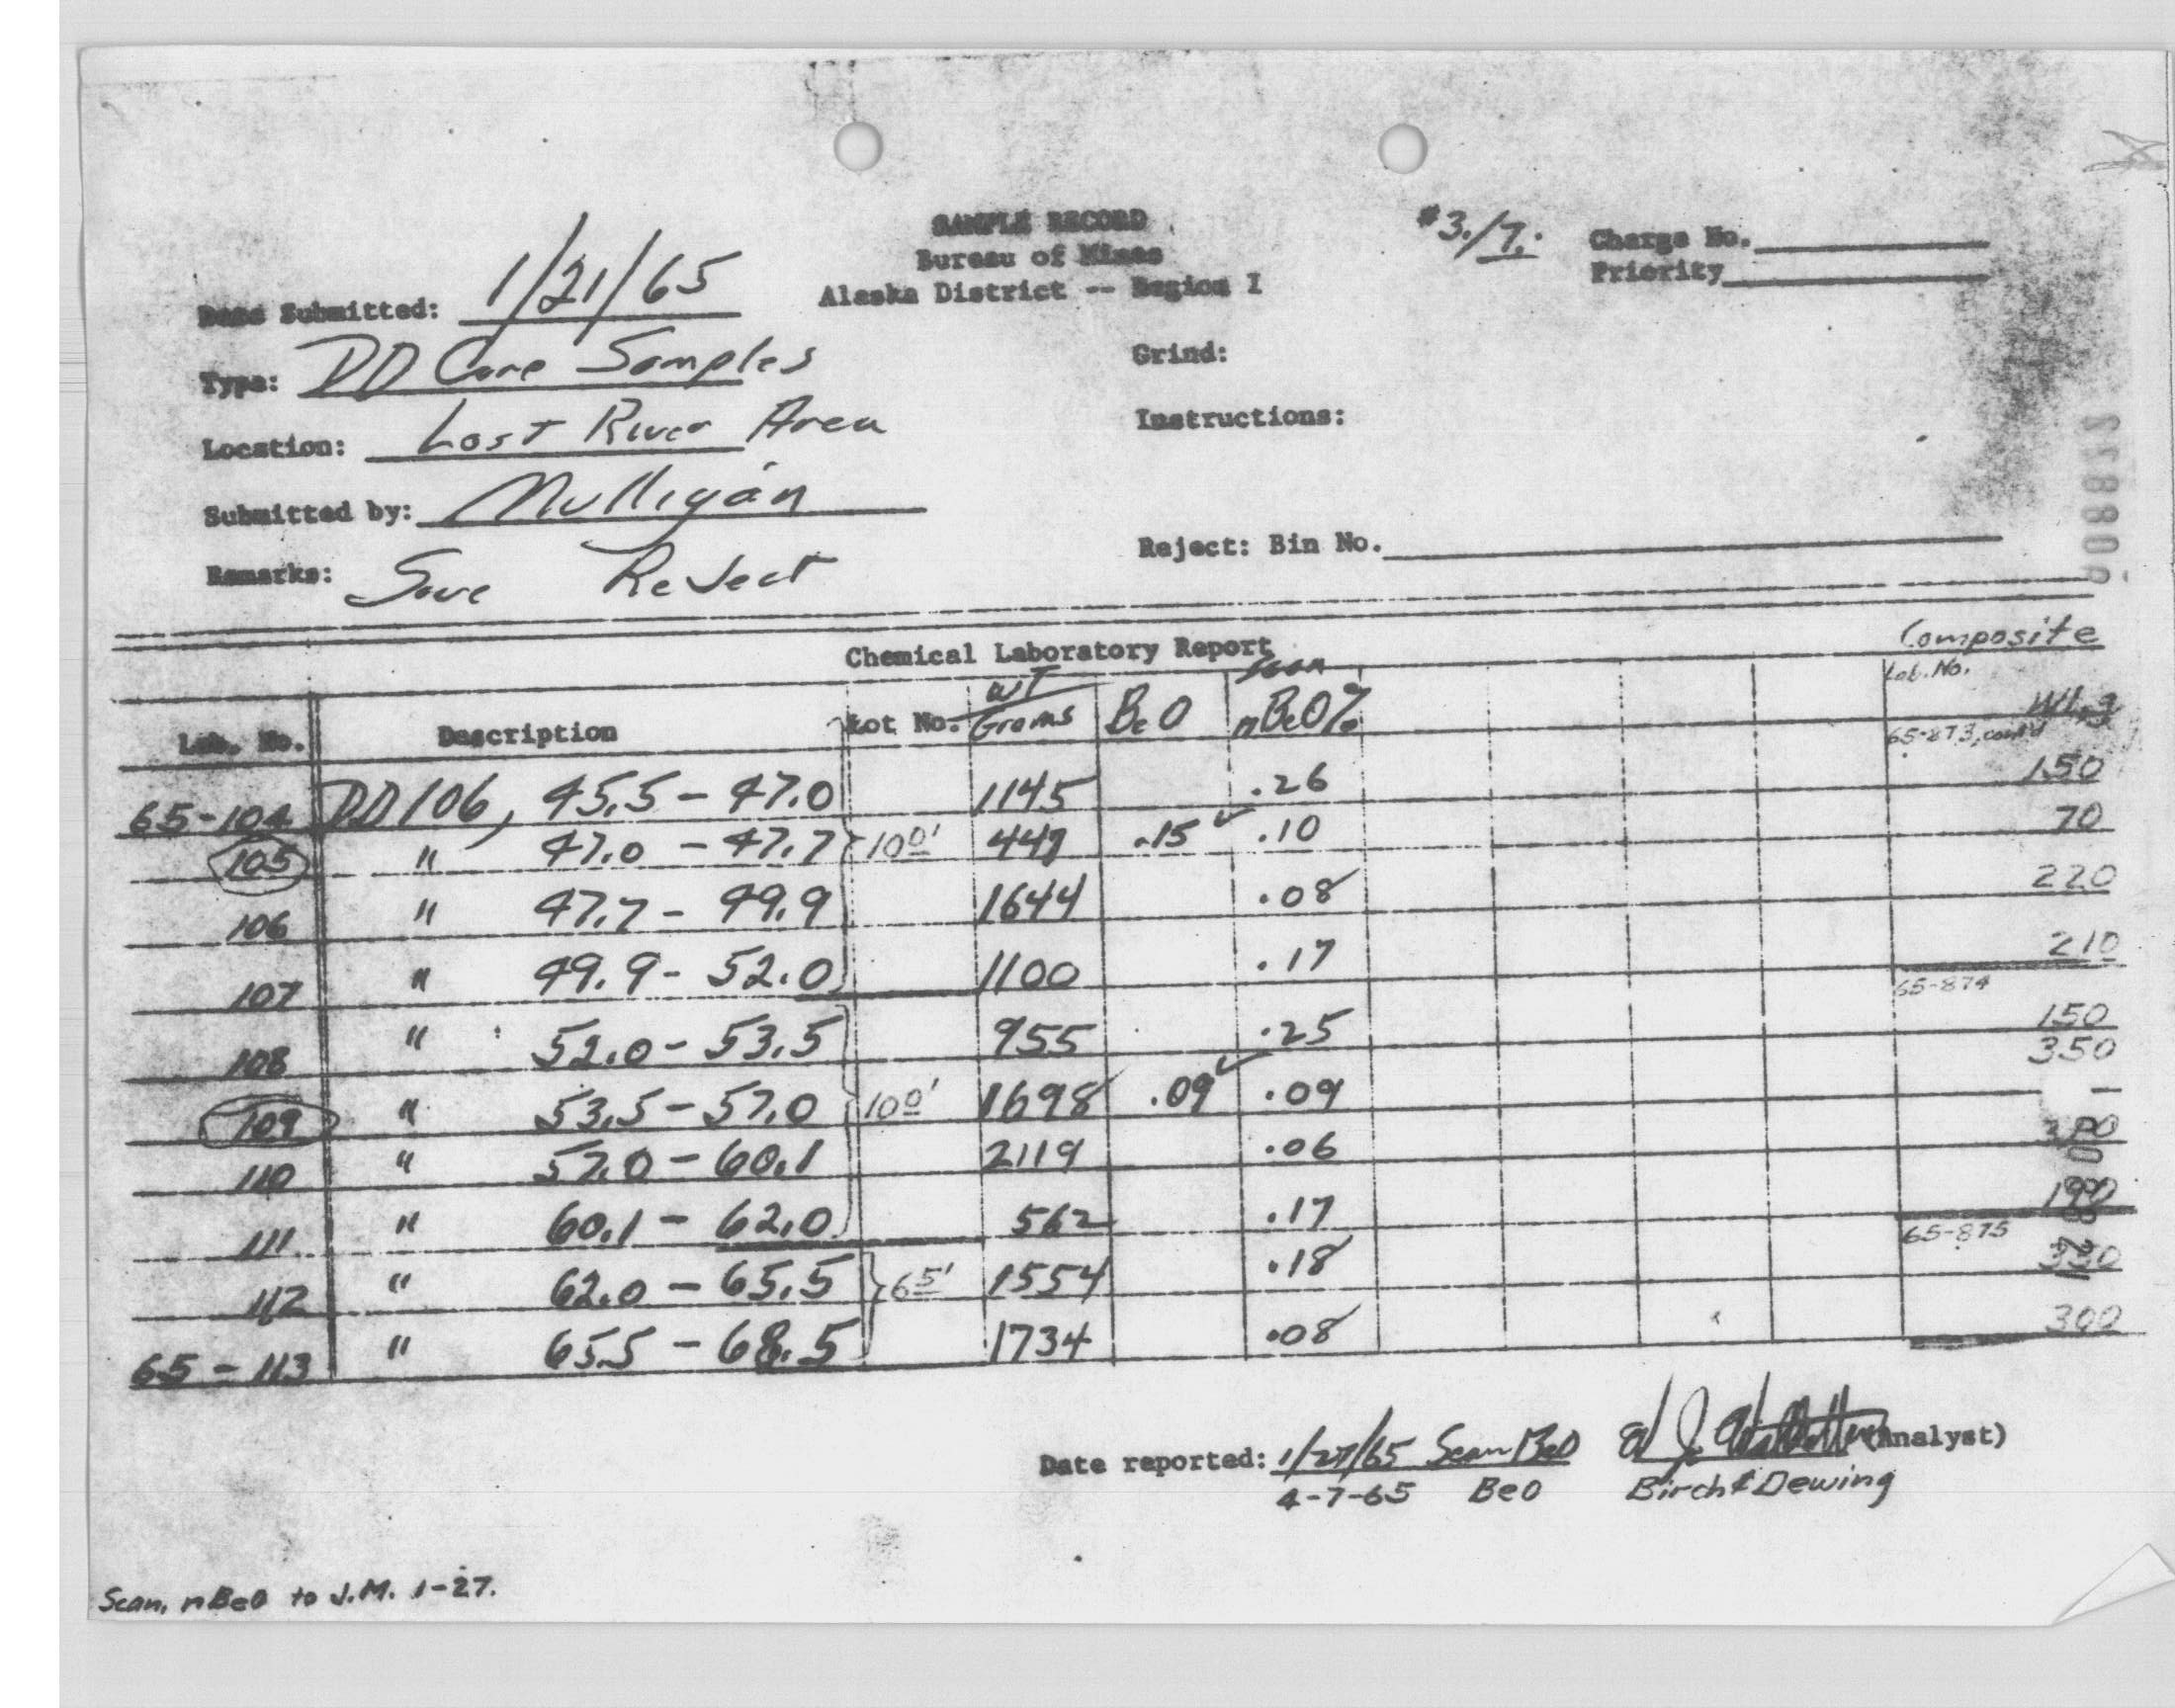 SAMPLE RECORD
Bureau of Mines
Alaska District -- Region I
#3./7.
Charge No.
Priority
Date Submitted: 1/21/65
Type: DD Core Samples
Grind:
Location: Lost River Area
Instructions:
Submitted by: Mulligan
Reject: Bin No.
Remarks: Save Reject
Chemical Laboratory Report
Composite
Lab. No. Description Lot No. WT Grams BeO Scan nBeO% Lab. No. Wt.g
65-873, cont'd
65-104 DD106, 45.5 - 47.0 1145 .26 150
105 " 47.0 - 47.7 10 0' 447 .15 ✓ .10 70
106 " 47.7 - 49.9 1644 .08 220
107 " 49.9 - 52.0 1100 .17 210
65-874
108 " 52.0 - 53.5 955 .25 150
109 " 53.5 - 57.0 10 0' 1698 .09 ✓ .09 350
110 " 57.0 - 60.1 2119 .06
111 " 60.1 - 62.0 562 .17 190
65-875
112 " 62.0 - 65.5 6 5' 1554 .18
65-113 " 65.5 - 68.5 1734 .08 300
Date reported: 1/27/65 Scan BeO (Analyst)
4-7-65 BeO Birch & Dewing
Scan, nBeO to J.M. 1-27.